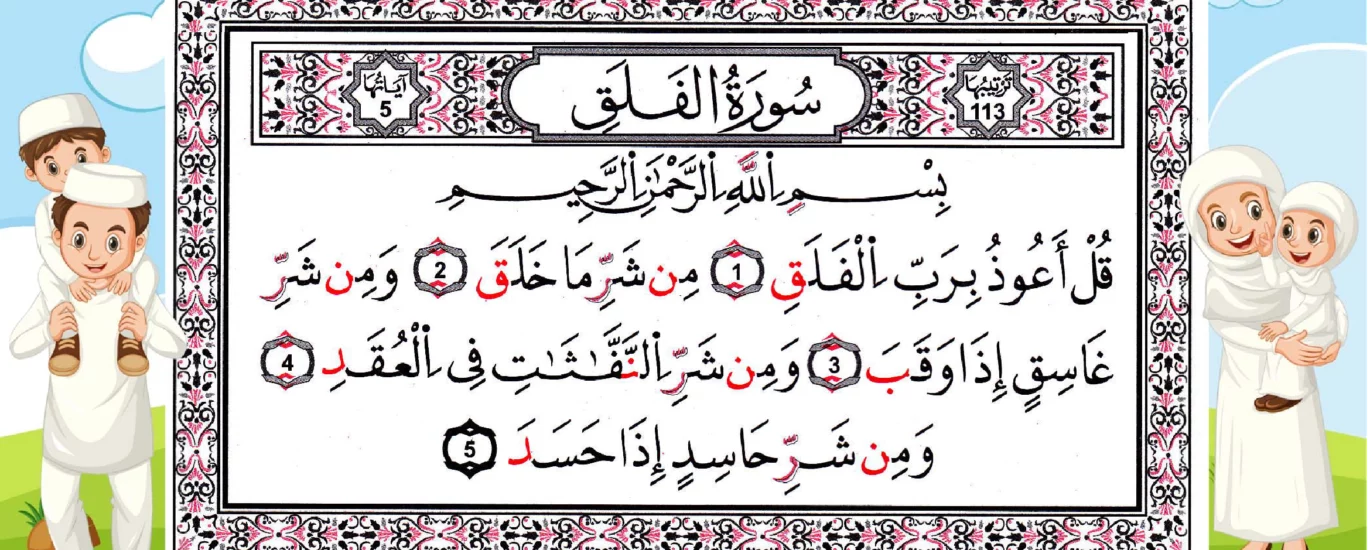 ترتيبها
113
سُورَةُ الفَلَقِ
آياتُها
5
بِسْمِ اِ۬للَّهِ اِ۬لرَّحْمَٰنِ اِ۬لرَّحِيمِ
قُلْ أَعُوذُ بِرَبِّ اِ۬لْفَلَقِ 1 مِن شَرِّ مَا خَلَقَ 2 وَمِن شَرِّ
غَاسِقٍ إِذَا وَقَبَ 3 وَمِن شَرِّ اِ۬لنَّفَّٰثَٰتِ فِي اِ۬لْعُقَدِ 4
وَمِن شَرِّ حَاسِدٍ إِذَا حَسَدَ 5